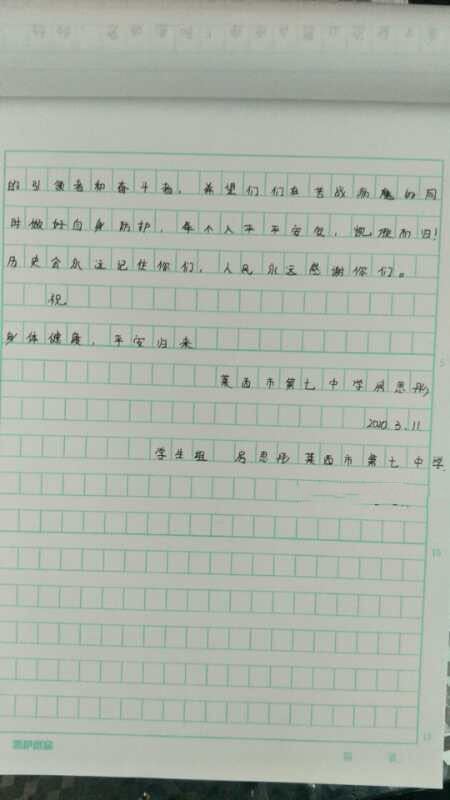 的引领者和奋斗者，希望们们在苦战病魔的同
时做好自身防护，每个人平平安安，凯旋而归！
历史会永远记住你们，人民永远感谢你们。
祝
身体健康，平安归来
5
莱西市第七中学房思彤
2020.3.11
学生组 房思彤 莱西市第七中学
10
15